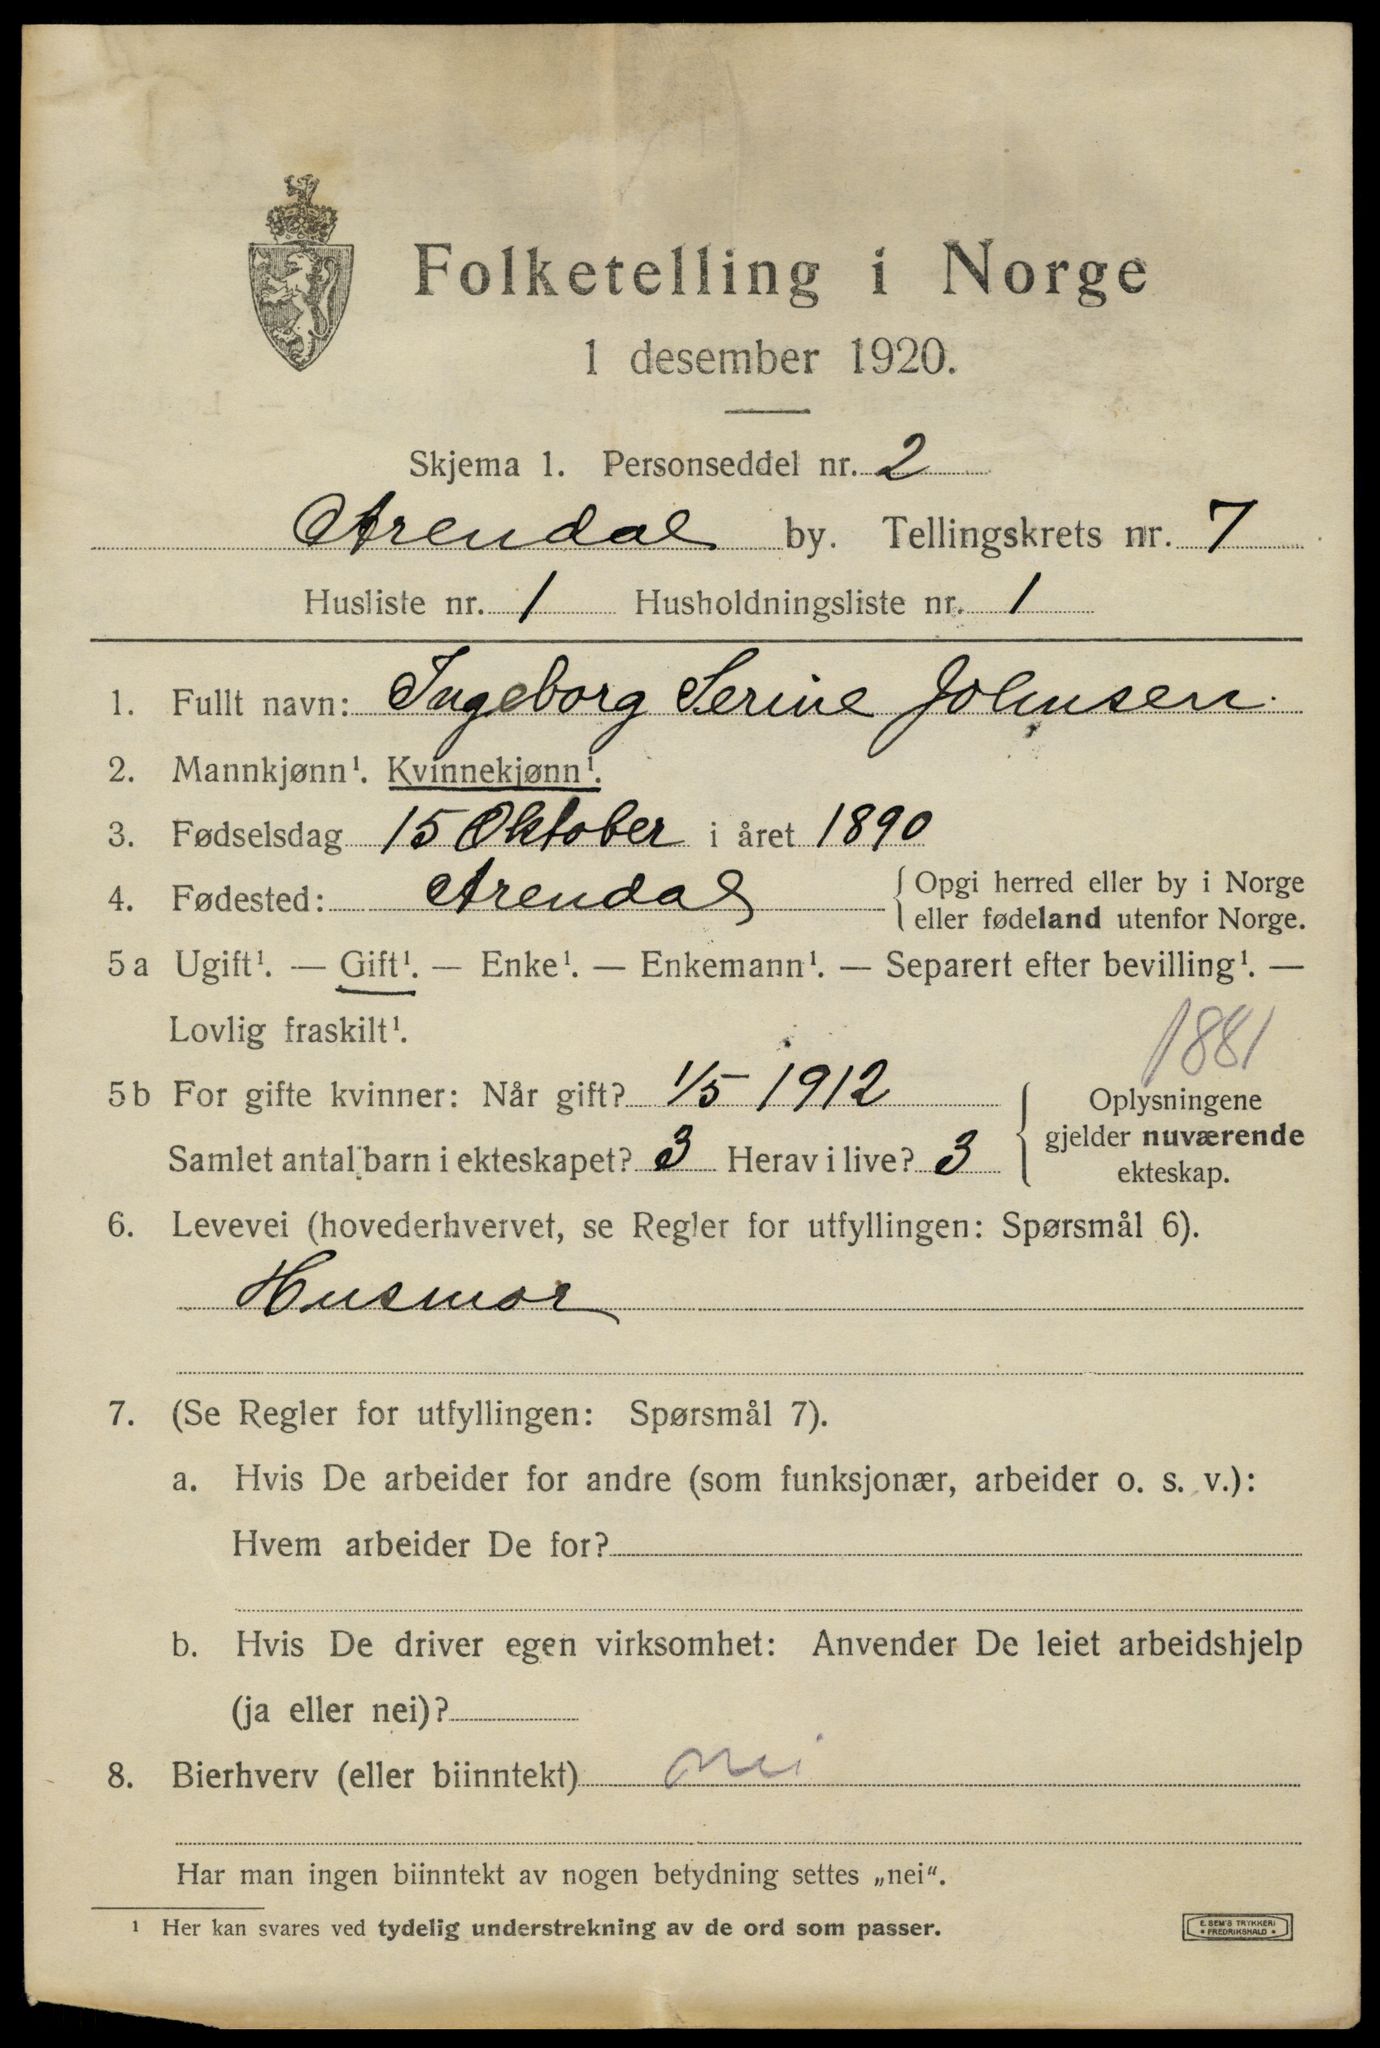 Folketelling i Norge
1 desember 1920.
Skjema 1. Personseddel nr. 2
Arendal by. Tellingskrets nr. 7
Husliste nr. 1 Husholdningsliste nr. 1
1. Fullt navn: Ingeborg Serine Johnsen
2. Mannkjønn¹. Kvinnekjønn¹.
3. Fødselsdag 15 Oktober i året 1890
4. Fødested: Arendal { Opgi herred eller by i Norge
eller fødeland utenfor Norge.
5a Ugift¹. — Gift¹. — Enke¹. — Enkemann¹. — Separert efter bevilling¹. —
Lovlig fraskilt¹.
1881
5b For gifte kvinner: Når gift? 1/5 1912
Samlet antal barn i ekteskapet? 3 Herav i live? 3
Oplysningene
gjelder nuværende
ekteskap.
6. Levevei (hovederhvervet, se Regler for utfyllingen: Spørsmål 6).
Husmor
7. (Se Regler for utfyllingen: Spørsmål 7).
a. Hvis De arbeider for andre (som funksjonær, arbeider o. s. v.):
Hvem arbeider De for?
b. Hvis De driver egen virksomhet: Anvender De leiet arbeidshjelp
(ja eller nei)?
8. Bierhverv (eller biinntekt) nei
Har man ingen biinntekt av nogen betydning settes „nei“.
¹ Her kan svares ved tydelig understrekning av de ord som passer.
E. SEM'S TRYKKERI
• FREDRIKSHALD •